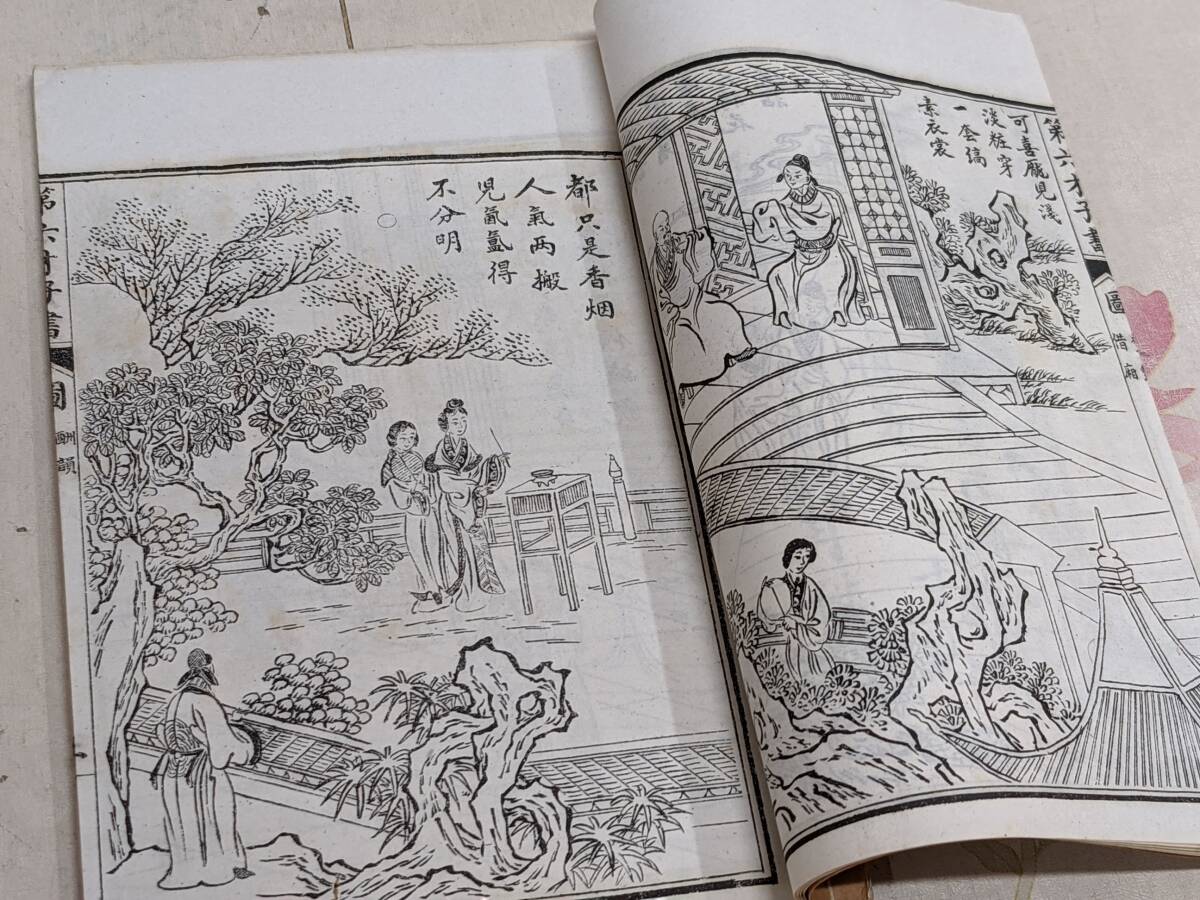 第六才子書
圖
借廂
可喜龎兒淺
淡粧穿
一套縞
素衣裳
都只是香烟
人氣两搬
兒氤氲得
不分明
第六才子書
圖
酬韻